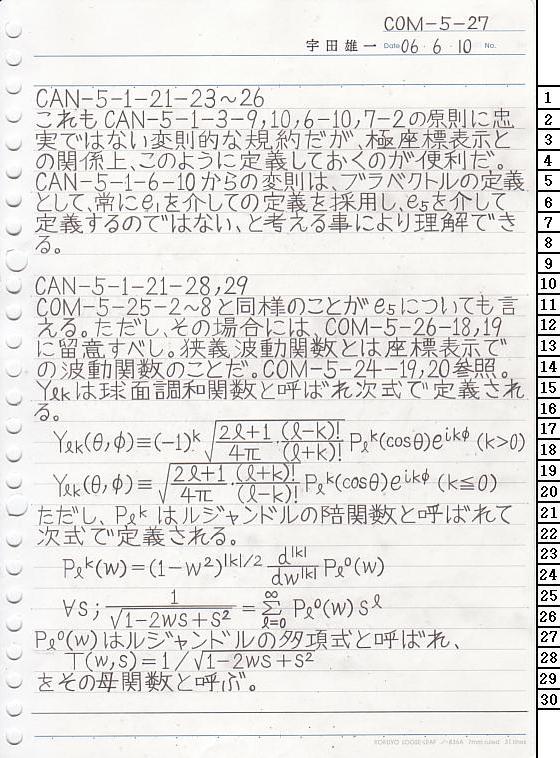 COM-5-27
宇田雄一 Date 06・6・10 No.
CAN-5-1-21-23〜26
これもCAN-5-1-3-9,10,6-10,7-2の原則に忠
実ではない変則的な規約だが、極座標表示と
の関係上、このように定義しておくのが便利だ。
CAN-5-1-6-10からの変則は、ブラベクトルの定義
として、常にe₁を介しての定義を採用し、e₅を介して
定義するのではない、と考える事により理解でき
る。
CAN-5-1-21-28,29
COM-5-25-2〜8と同様のことがe₅についても言
える。ただし、その場合には、COM-5-26-18,19
に留意すべし。狭義波動関数とは座標表示で
の波動関数のことだ。COM-5-24-19,20参照。
Yℓkは球面調和関数と呼ばれ次式で定義され
る。
Yℓk(θ,φ)≡(-1)^k √(2ℓ+1/4π・(ℓ-k)!/(ℓ+k)!) Pℓ^k(cosθ)e^ikφ (k>0)
Yℓk(θ,φ)≡√(2ℓ+1/4π・(ℓ+k)!/(ℓ-k)!) Pℓ^k(cosθ)e^ikφ (k≦0)
ただし、Pℓ^kはルジャンドルの陪関数と呼ばれて
次式で定義される。
Pℓ^k(w)=(1-w²)^|k|/2 d^|k|/dw^|k| Pℓ⁰(w)
∀s; 1/√(1-2ws+s²) = Σ_{ℓ=0}^∞ Pℓ⁰(w)s^ℓ
Pℓ⁰(w)はルジャンドルの多項式と呼ばれ、
T(w,s)=1/√(1-2ws+s²)
をその母関数と呼ぶ。
KOKUYO LOOSE-LEAF ノ-836A 7mm ruled 31 lines
1
2
3
4
5
6
7
8
9
10
11
12
13
14
15
16
17
18
19
20
21
22
23
24
25
26
27
28
29
30